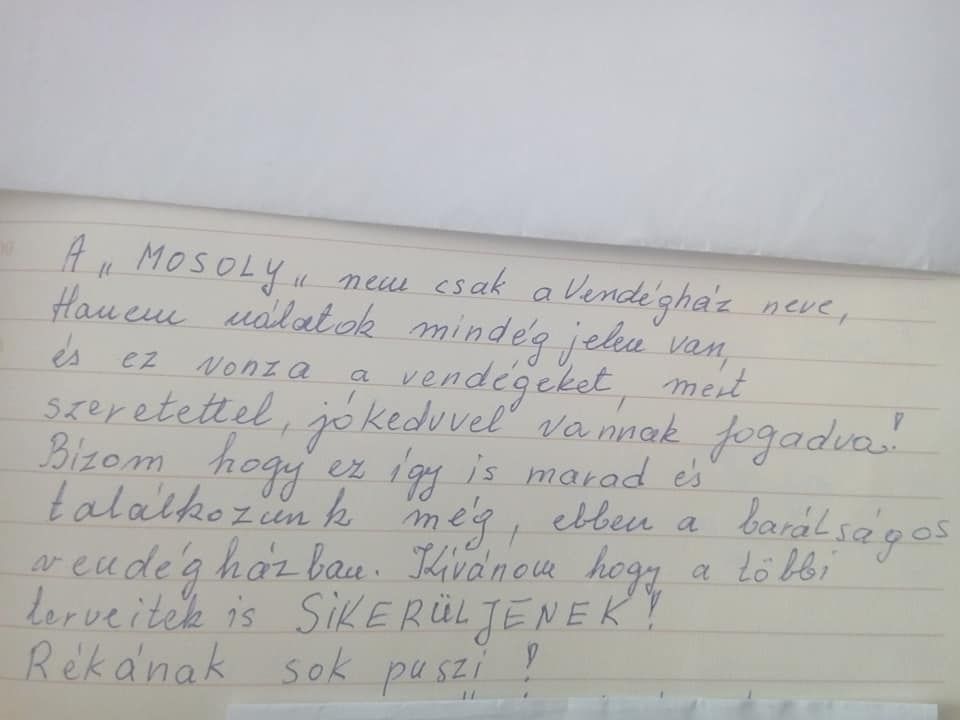 A „MOSOLY„ nem csak a Vendégház neve,
Hanem nálatok mindég jelen van,
és ez vonza a vendégeket, mert
szeretettel, jókedvvel vannak fogadva!
Bízom hogy ez így is marad és
találkozunk még, ebben a barátságos
vendégházban. Kívánom hogy a többi
terveitek is SIKERÜLJENEK!
Rékának sok puszi!